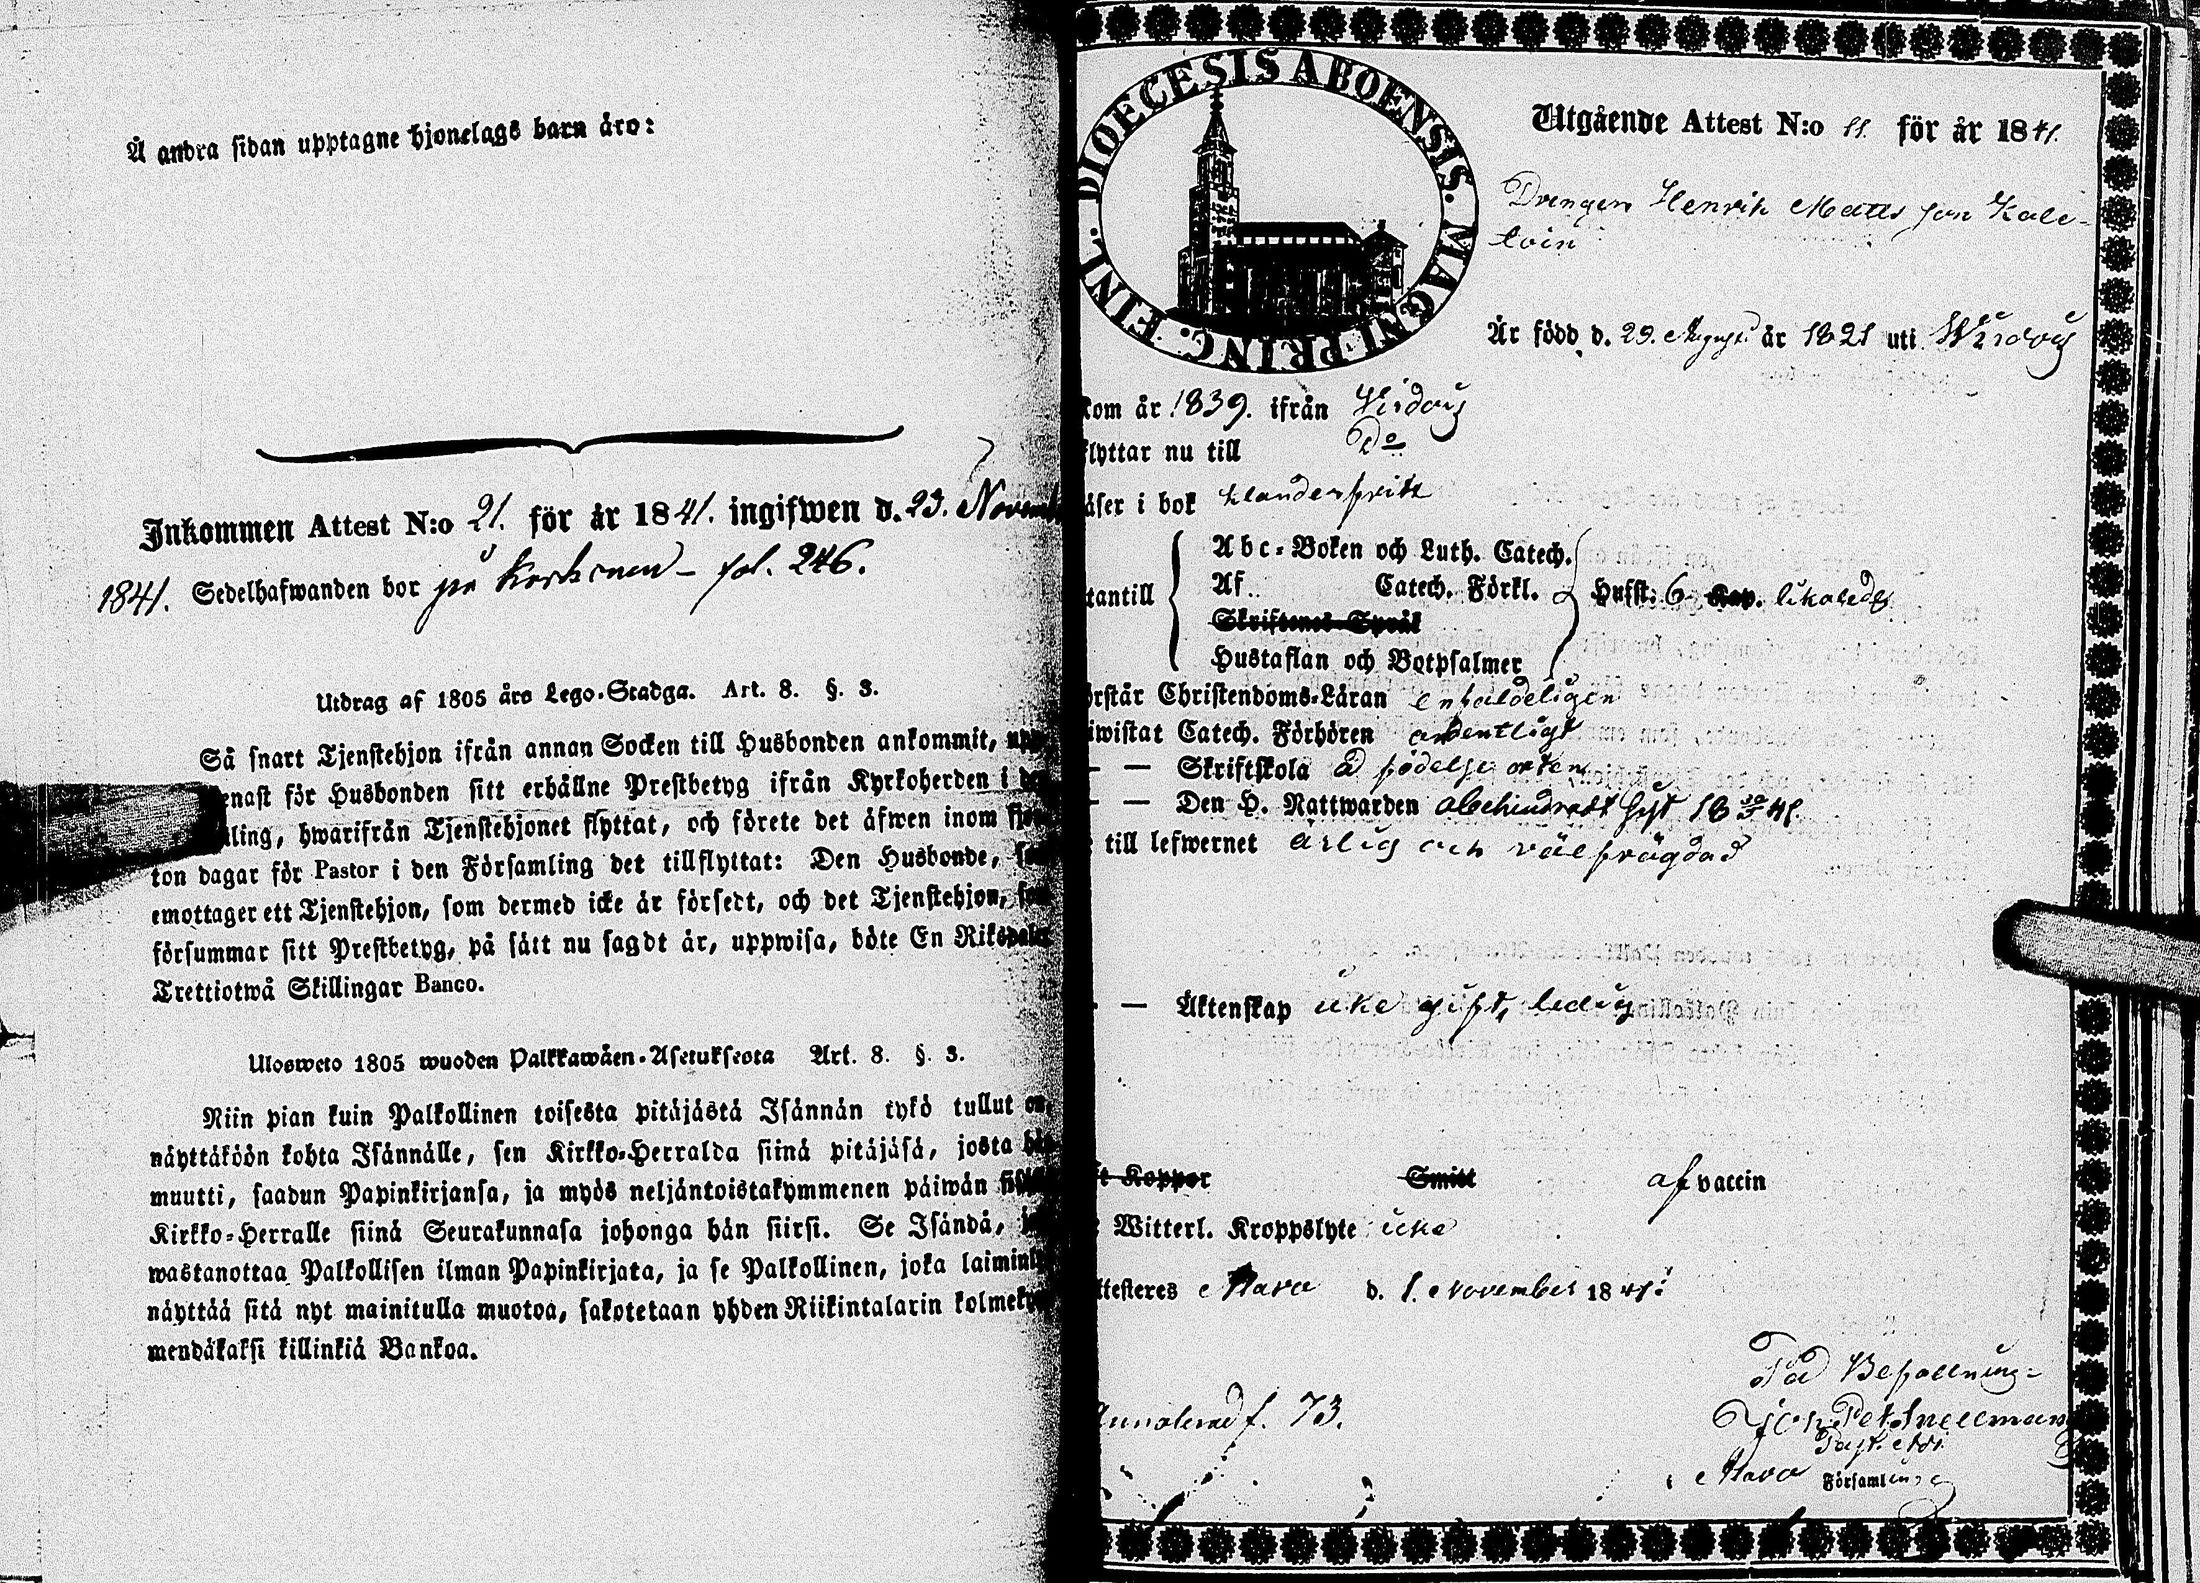 Å andra sidan upptagne hjonelags barn äro:
Inkommen Attest N:o 21. för år 1841. ingifwen d. 23. Novemb
1841. Sedelhafwanden bor på fol. 246.
Utdrag af 1805 års Lego-Stadga. Art. 8. §. 3.
Så snart Tjenstehjon ifrån annan Socken till Husbonden ankommit, upp
enast för Husbonden sitt erhållne Prestbetyg ifrån Kyrkoherden i de
ling, hwarifrån Tjenstehjonet flyttat, och förete det äfwen inom fjor
ton dagar för Pastor i den Församling det tillflyttat: Den Husbonde, so
emottager ett Tjenstehjon, som dermed icke är försedt, och det Tjenstehjon, som
försummar sitt Prestbetyg, på sätt nu sagdt är, uppwisa, böte En Riksdaler
Trettiotwå Skillingar Banco.
Ulosweto 1805 wuoden Palkkawäen-Asetuksesta Art. 8. §. 3.
Niin pian kuin Palkollinen toisesta pitäjästä Isännän tykö tullut on,
näyttäköön kohta Isännälle, sen Kirkko-Herralda siinä pitäjäsä, josta hän
muutti, saadun Papinkirjansa, ja myös neljäntoistakymmenen päiwän sisäl
Kirkko-Herralle siinä Seurakunnasa johonga hän siirsi. Se Isändä, j
wastanottaa Palkollisen ilman Papinkirjata, ja se Palkollinen, joka laiminly
näyttää sitä nyt mainitulla muotoa, sakotetaan yhden Riikintalarin kolmekym
mendäkaksi killinkiä Bankoa.
DIOECESIS ABOENSIS. MAGNI PRINC. FINL.
Utgående Attest N:o 11. för år 1841.
Drengen Henrik Matts son Kale-
toin
Är född d. 29. Augusti år 1821 uti Wirdois
kom år 1839. ifrån Wirdois
flyttar nu till Do
äser i bok klanderfritt
Abc-Boken och Luth. Catech.
Af Catech. Förkl.
tantill Hufst. 6 Kap. likaledes
Skriftenes Språk
Hustaflan och Botpsalmer
örstår Christendoms-Läran enfaldeligen
iwistat Catech. Förhören ordentligt
— — Skriftskola å födelse orten
— — Den H. Nattwarden obehindradt sist 18 41.
till lefwernet ärlig och välfrägdad
— — Äktenskap icke gift, ledig
t Koppor Smitt af vaccin
Witterl. Kroppslyte icke
ttesteres Alavo d. 1. November 1841:
På Befallning
f. 73. Joh. Pet. Snellman
Past. Adj.
Alavo Församling